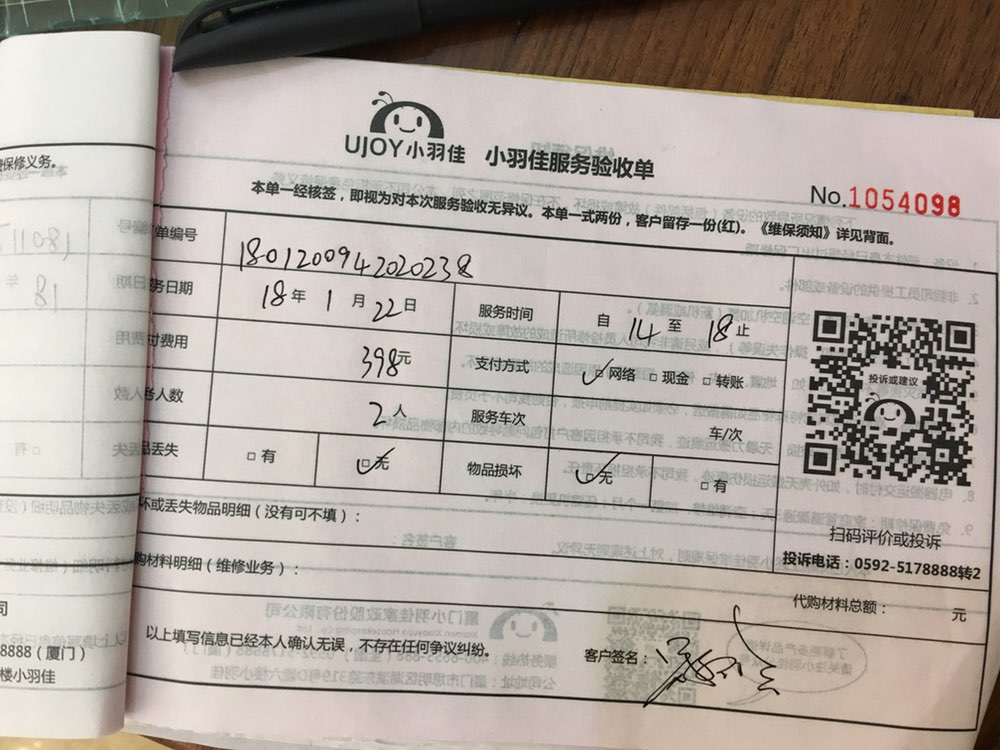 UJOY小羽佳 小羽佳服务验收单
No.1054098
本单一经核签，即视为对本次服务验收无异议。本单一式两份，客户留存一份(红)。《维保须知》详见背面。
单编号 1801200942020238
务日期 18年 1月 22日 服务时间 自 14 至 18 止
付费用 398元 支付方式 ☑网络 □现金 □转账
务人数 2人 服务车次 车/次
品丢失 □有 ☑无 物品损坏 ☑无 □有
投诉或建议
扫码评价或投诉
投诉电话：0592-5178888转2
坏或丢失物品明细（没有可不填）：
购材料明细（维修业务）：
代购材料总额： 元
以上填写信息已经本人确认无误，不存在任何争议纠纷。
客户签名：
保修义务。
司
8888（厦门）
楼小羽佳